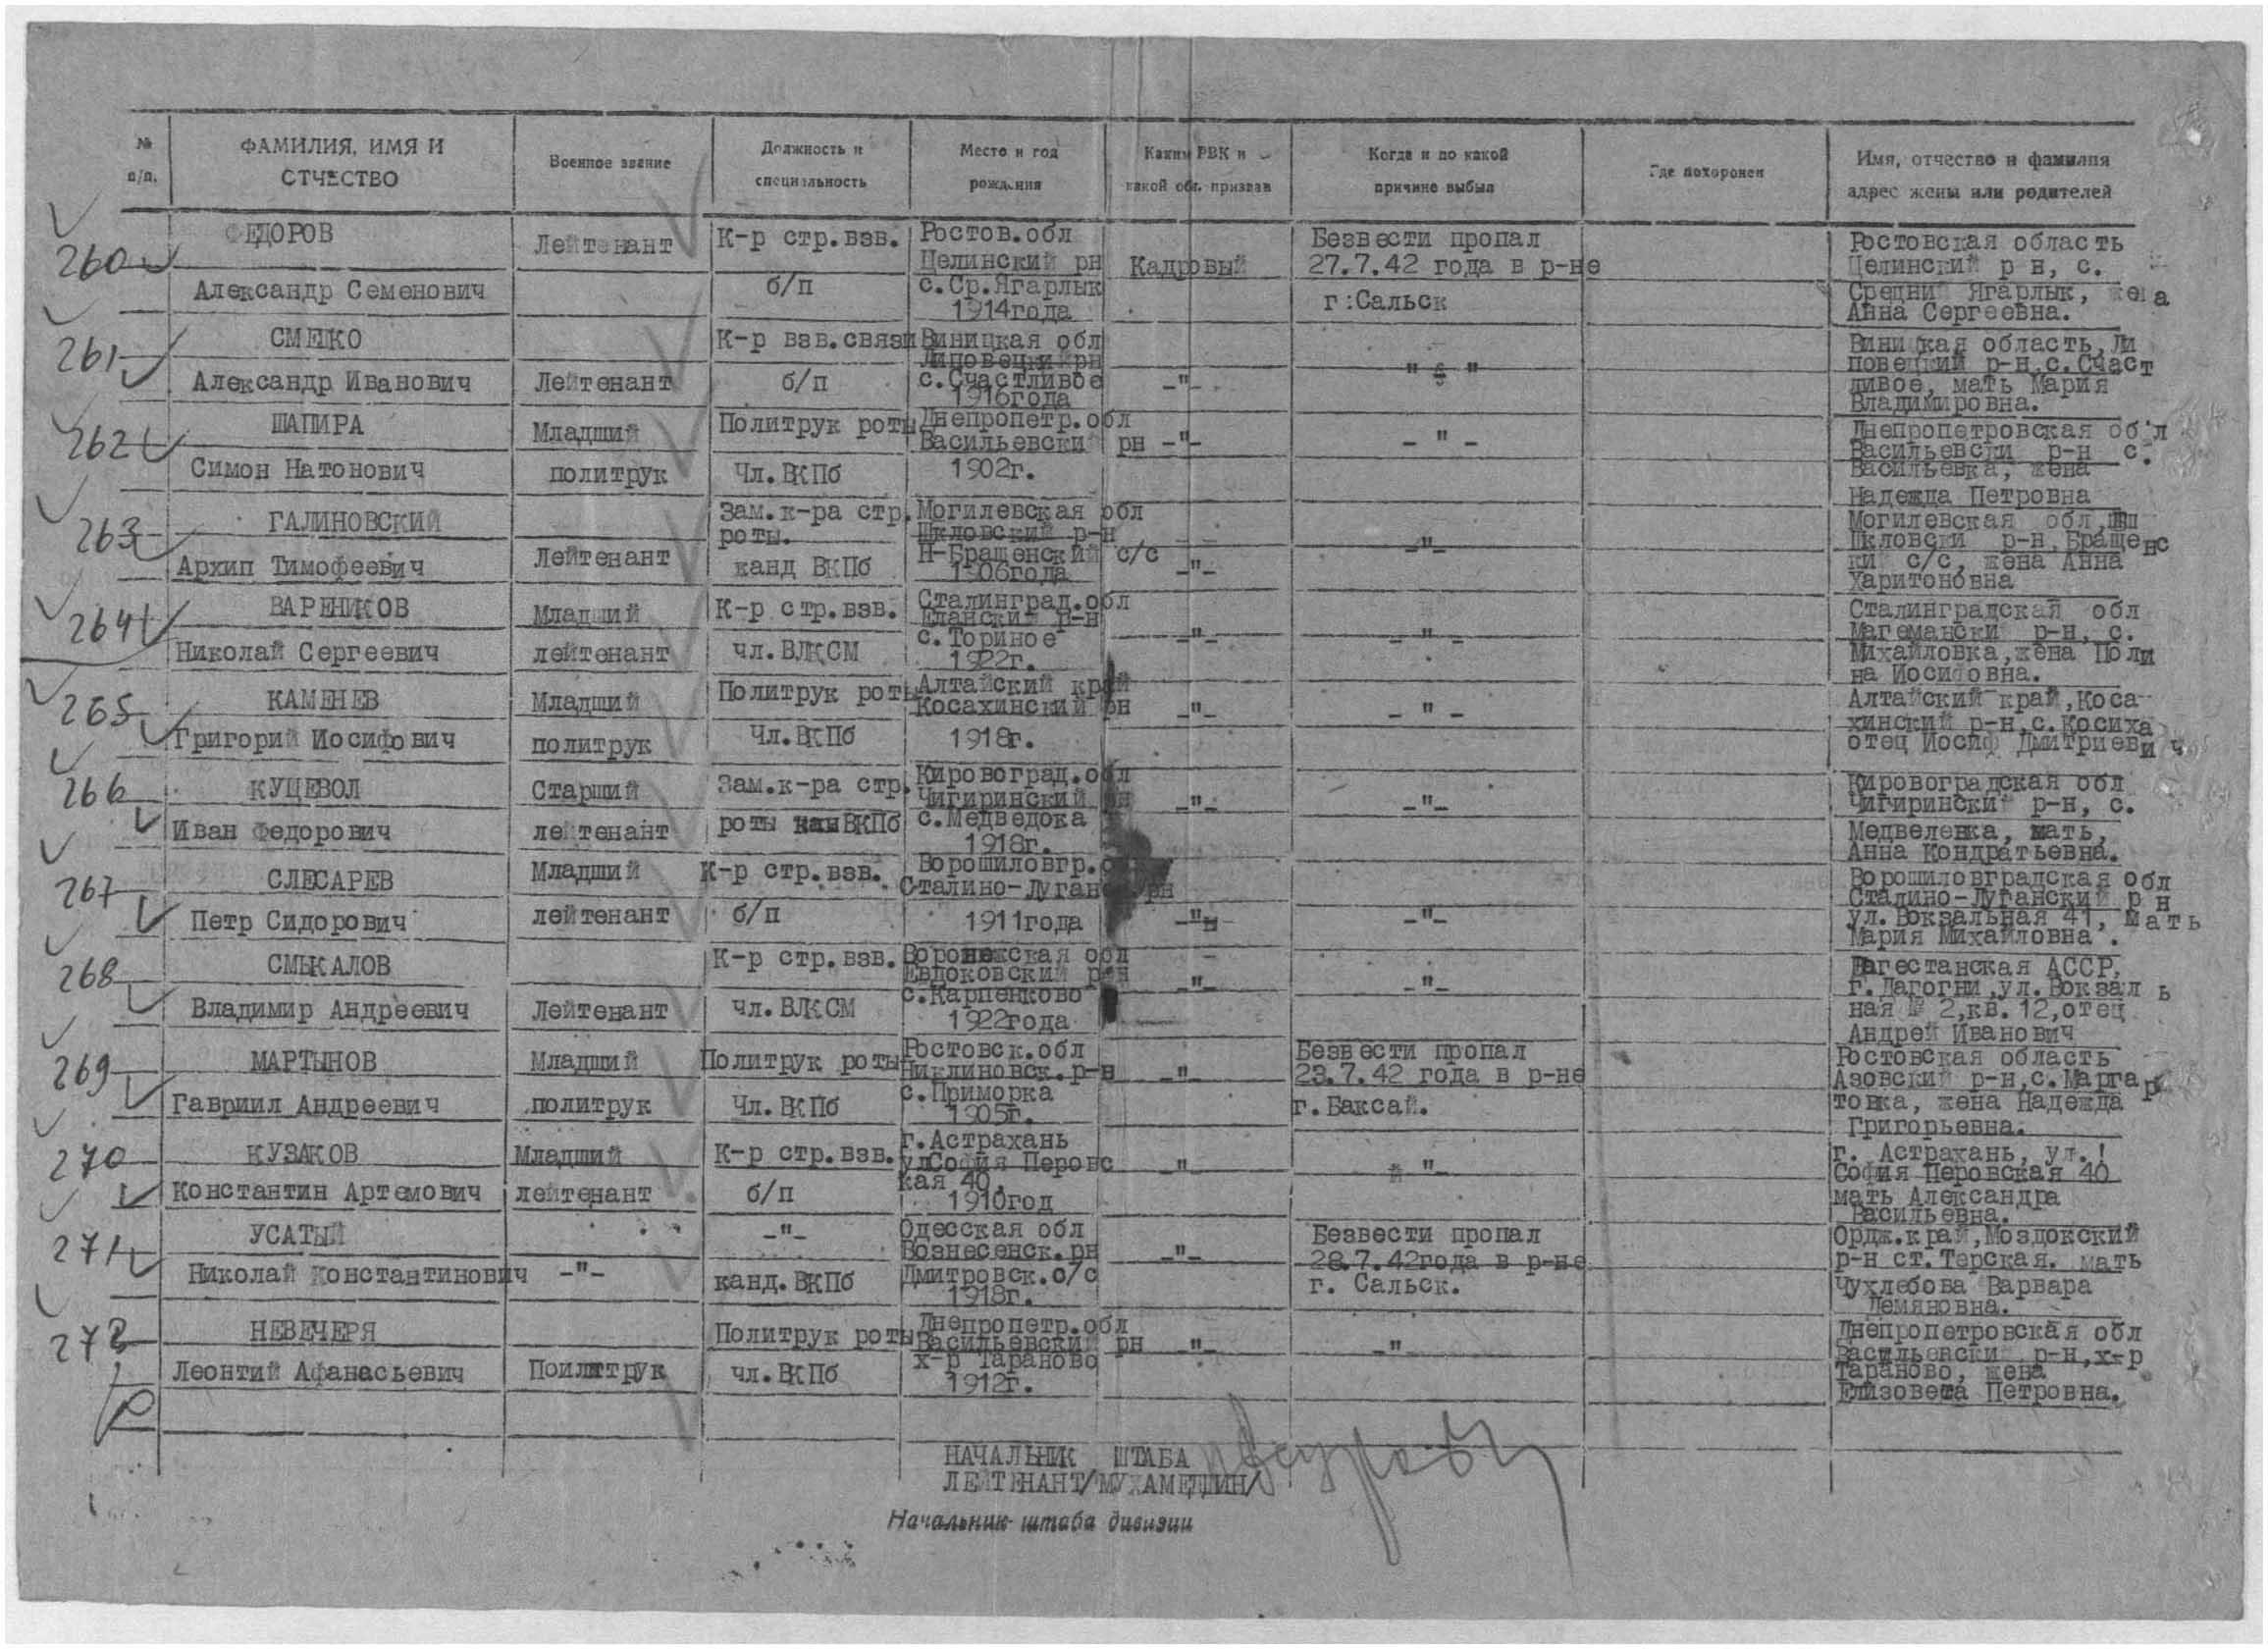 № п/п.
ФАМИЛИЯ, ИМЯ И ОТЧЕСТВО
Военное звание
Должность и специальность
Место и год рождения
Каким РВК и какой обл. призван
Когда и по какой причине выбыл
Где похоронен
Имя, отчество и фамилия адрес жены или родителей
260
ФЕДОРОВ
Александр Семенович
Лейтенант
К-р стр.взв.
б/п
Ростов.обл
Целинский рн
с.Ср.Ягарлык
1914года
Кадровый
Безвести пропал
27.7.42 года в р-не
г:Сальск
Ростовская область
Целинский р н, с.
Средний Ягарлык, жена
Анна Сергеевна.
261
Александр Иванович
Лейтенант
К-р взв.связи
б/п
Виницкая обл
Липовецкий рн
с.Счастливое
1916года
-"-
" "
Виницкая область, Ли
повецкий р-н,с.Счаст
ливое, мать Мария
Владимировна.
262
ШАПИРА
Симон Натонович
Младший
политрук
Политрук роты
Чл.ВКПб
Днепропетр.обл
Васильевский рн
1902г.
-"-
- " -
Днепропетровская об'л
Васильевски р-н с.
Васильевка, жена
Надежда Петровна
263
ГАЛИНОВСКИЙ
Архип Тимофеевич
Лейтенант
Зам.к-ра стр.
роты.
канд ВКПб
Могилевская обл
Шкловский р-н
Н-Бращенский с/с
1906года
-"-
-"-
Могилевская обл,
Шкловски р-н,Бращенс
ки с/с, жена Анна
Харитоновна
264
ВАРЕНИКОВ
Николай Сергеевич
Младший
лейтенант
К-р стр.взв.
чл.ВЛКСМ
Сталинград.обл
Елански р-н
с.Ториное
1922г.
-"-
-"-
Сталинградская обл
Магемански р-н, с.
Михайловка,жена Поли
на Иосифовна.
265
КАМЕНЕВ
Григорий Иосифович
Младший
политрук
Политрук роты
Чл.ВКПб
Алтайский край
Косахинский рн
1918г.
-"-
- " -
Алтайский край,Коса
хинский р-н,с.Косиха
отец Иосиф Дмитриевич
266
КУЦЕВОЛ
Иван Федорович
Старший
лейтенант
Зам.к-ра стр.
роты ВКПб
Кировоград.обл
Чигиринский рн
с.Медведока
1918г.
-"-
-"-
Кировоградская обл
Чигирински р-н, с.
Медвеленка, мать,
Анна Кондратьевна.
267
СЛЕСАРЕВ
Петр Сидорович
Младший
лейтенант
К-р стр.взв.
б/п
Ворошиловгр.
Сталино-Луган рн
1911года
-"-
-"-
Ворошиловградская обл
Сталино-Луганский р н
ул.Вокзальная 41, мать
Мария Михайловна .
268
СМЫКАЛОВ
Владимир Андреевич
Лейтенант
К-р стр.взв.
чл.ВЛКСМ
Воронежская обл
Евдоковский р-н
с.Карпенково
1922года
-"-
-"-
Дагестанская АССР,
г.Дагогни,ул.Вокзаль
ная № 2,кв.12,отец
Андрей Иванович
269
МАРТЫНОВ
Гавриил Андреевич
Младший
политрук
Политрук роты
Чл.ВКПб
Ростовск.обл
Никлиновск.р-н
с.Приморка
1905г.
-"-
Безвести пропал
23.7.42 года в р-не
г.Баксай.
Ростовская область
Азовский р-н,с.Маргар
товка, жена Надежда
Григорьевна.
270
КУЗАКОВ
Константин Артемович
Младший
лейтенант
К-р стр.взв.
б/п
г.Астрахань
улСофия Перовс
кая 40,
1910год
-"-
"-
г. Астрахань, ул.!
София Перовская 40
мать Александра
Васильевна.
271
УСАТЫЙ
Николай Константинович
-"-
-"-
канд.ВКПб
Одесская обл
Вознесенск.рн
Дмитровск.с/с
1918г.
-"-
Безвести пропал
28.7.42года в р-не
г. Сальск.
Ордж.край,Моздокский
р-н ст.Терская. мать
Чухлебова Варвара
Демяновна.
272
НЕВЕЧЕРЯ
Леонтий Афанасьевич
Поилттрук
Политрук роты
чл.ВКПб
Днепропетр.обл
Васильевский рн
х-р Тараново
1912г.
-"-
-"-
Днепропетровская обл
Васильевски р-н,х-р
Тараново, жена
Елизовета Петровна.
НАЧАЛЬНИК ШТАБА
ЛЕЙТЕНАНТ/МУХАМЕДДИН/
Начальник штаба дивизии